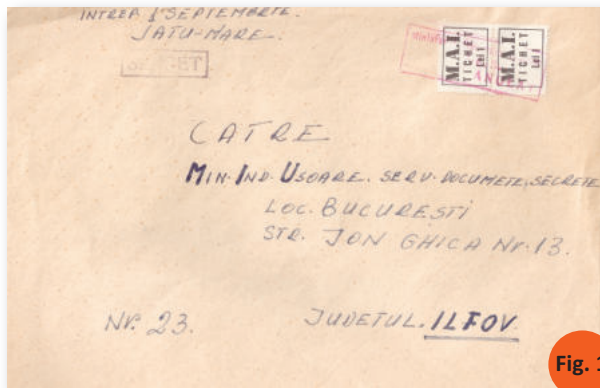 INTREP. 1 SEPTEMBRIE.
SATU-MARE.
SECRET
M.A.I.
TICHET
Lei 1
M.A.I.
TICHET
Lei 1
ANULAT
CATRE
MIN. IND. USOARE. SERV. DOCUMETE, SECRETE
LOC. BUCURESTI
STR. ION GHICA Nr. 13.
Nr. 23.
JUDETUL. ILFOV
Fig.